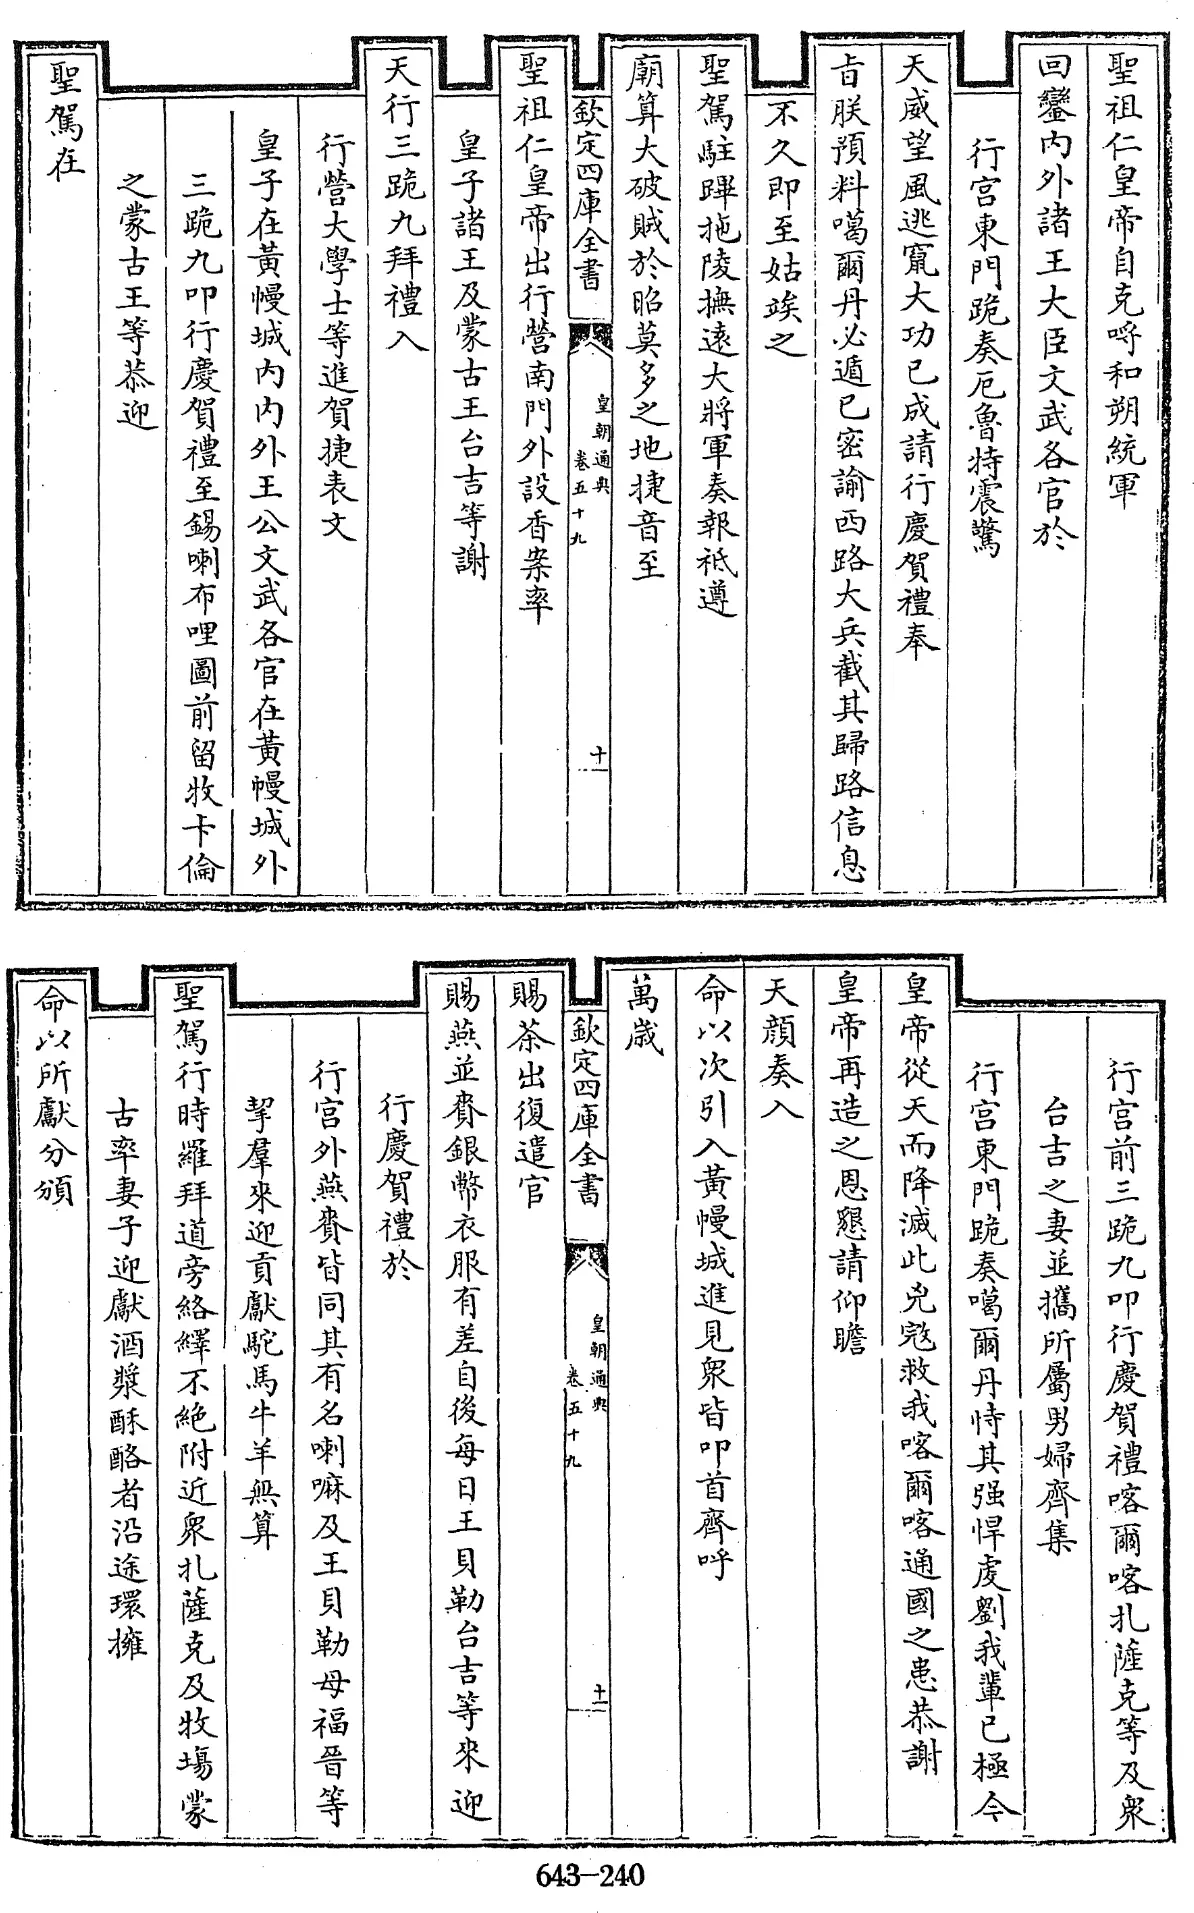 聖祖仁皇帝自克呼和朔統軍
回鑾内外諸王大臣文武各官於
行宫東門跪奏厄魯特震驚
天威望風逃竄大功已成請行慶賀禮奉
㫖朕預料噶爾丹必遁已密諭西路大兵截其歸路信息
不久即至姑竢之
聖駕駐蹕拖陵撫遠大將軍奏報祗遵
廟算大破賊於昭莫多之地捷音至
欽定四庫全書
皇朝通典
卷五十九
十
聖祖仁皇帝出行營南門外設香案率
皇子諸王及蒙古王台吉等謝
天行三跪九拜禮入
行營大學士等進賀捷表文
皇子在黃幔城内内外王公文武各官在黃幔城外
三跪九叩行慶賀禮至錫喇布哩圖前留牧卡倫
之蒙古王等恭迎
聖駕在
行宫前三跪九叩行慶賀禮喀爾喀扎薩克等及衆
台吉之妻並攜所屬男婦齊集
行宫東門跪奏噶爾丹恃其强悍虔劉我輩已極今
皇帝從天而降滅此兇宼救我喀爾喀通國之患恭謝
皇帝再造之恩懇請仰瞻
天顔奏入
命以次引入黃幔城進見衆皆叩首齊呼
萬歲
欽定四庫全書
皇朝通典
卷五十九
十一
賜茶出復遣官
賜燕並賚銀幣衣服有差自後每日王貝勒台吉等來迎
行慶賀禮於
行宫外燕賚皆同其有名喇嘛及王貝勒母福晉等
挈羣來迎貢獻駝馬牛羊無算
聖駕行時羅拜道旁絡繹不絶附近衆扎薩克及牧塲蒙
古率妻子迎獻酒漿酥酪者沿途環擁
命以所獻分頒
643-240